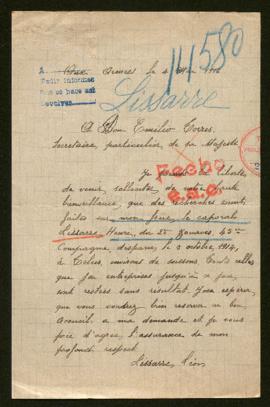 A
Pedir informes
que se hace así
devolver
111580
Lissarre
A Don Emilio Torres,
Secrétaire particulier, de sa Majesté
Je prends la liberté
de venir, solliciter, de votre haute
bienveillance, que des recherches soient
faites sur mon frère, le caporal
Lissarre Henri, du 2e Zouaves, 45me
Compagnie, disparu, le 2 octobre, 1914,
à environs de Toutes celles
que j'ai entreprises jusqu'à ce jour,
ont restées sans résultat. J'ose espérer,
que vous voudrez bien réserver un bon
accueil, à ma demande et je vous
prie d'agréer l'assurance de mon
profond respect.
Lissarre
Fecho